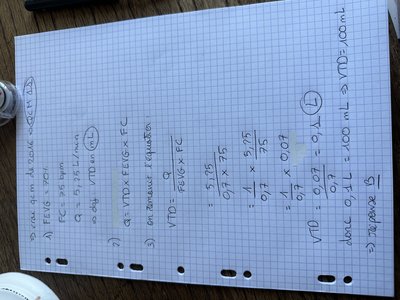 ⇒ vrai qcm de zone ⇒ QCM 11
1) FEVG = 70%
FC = 75 bpm
Q = 5,25 L/min
⇒ diff VTD en mL
2) Q = VTD × FEVG × FC
3) on renverse l'équation
VTD = Q / FEVG × FC
= 5,25 / 0,7 × 75
= 1 / 0,7 × 5,25 / 75
= 1 / 0,7 × 0,07
VTD = 0,07 / 0,7 = 0,1 L
donc 0,1 L = 100 mL ⇒ VTD = 100 mL
⇒ réponse B